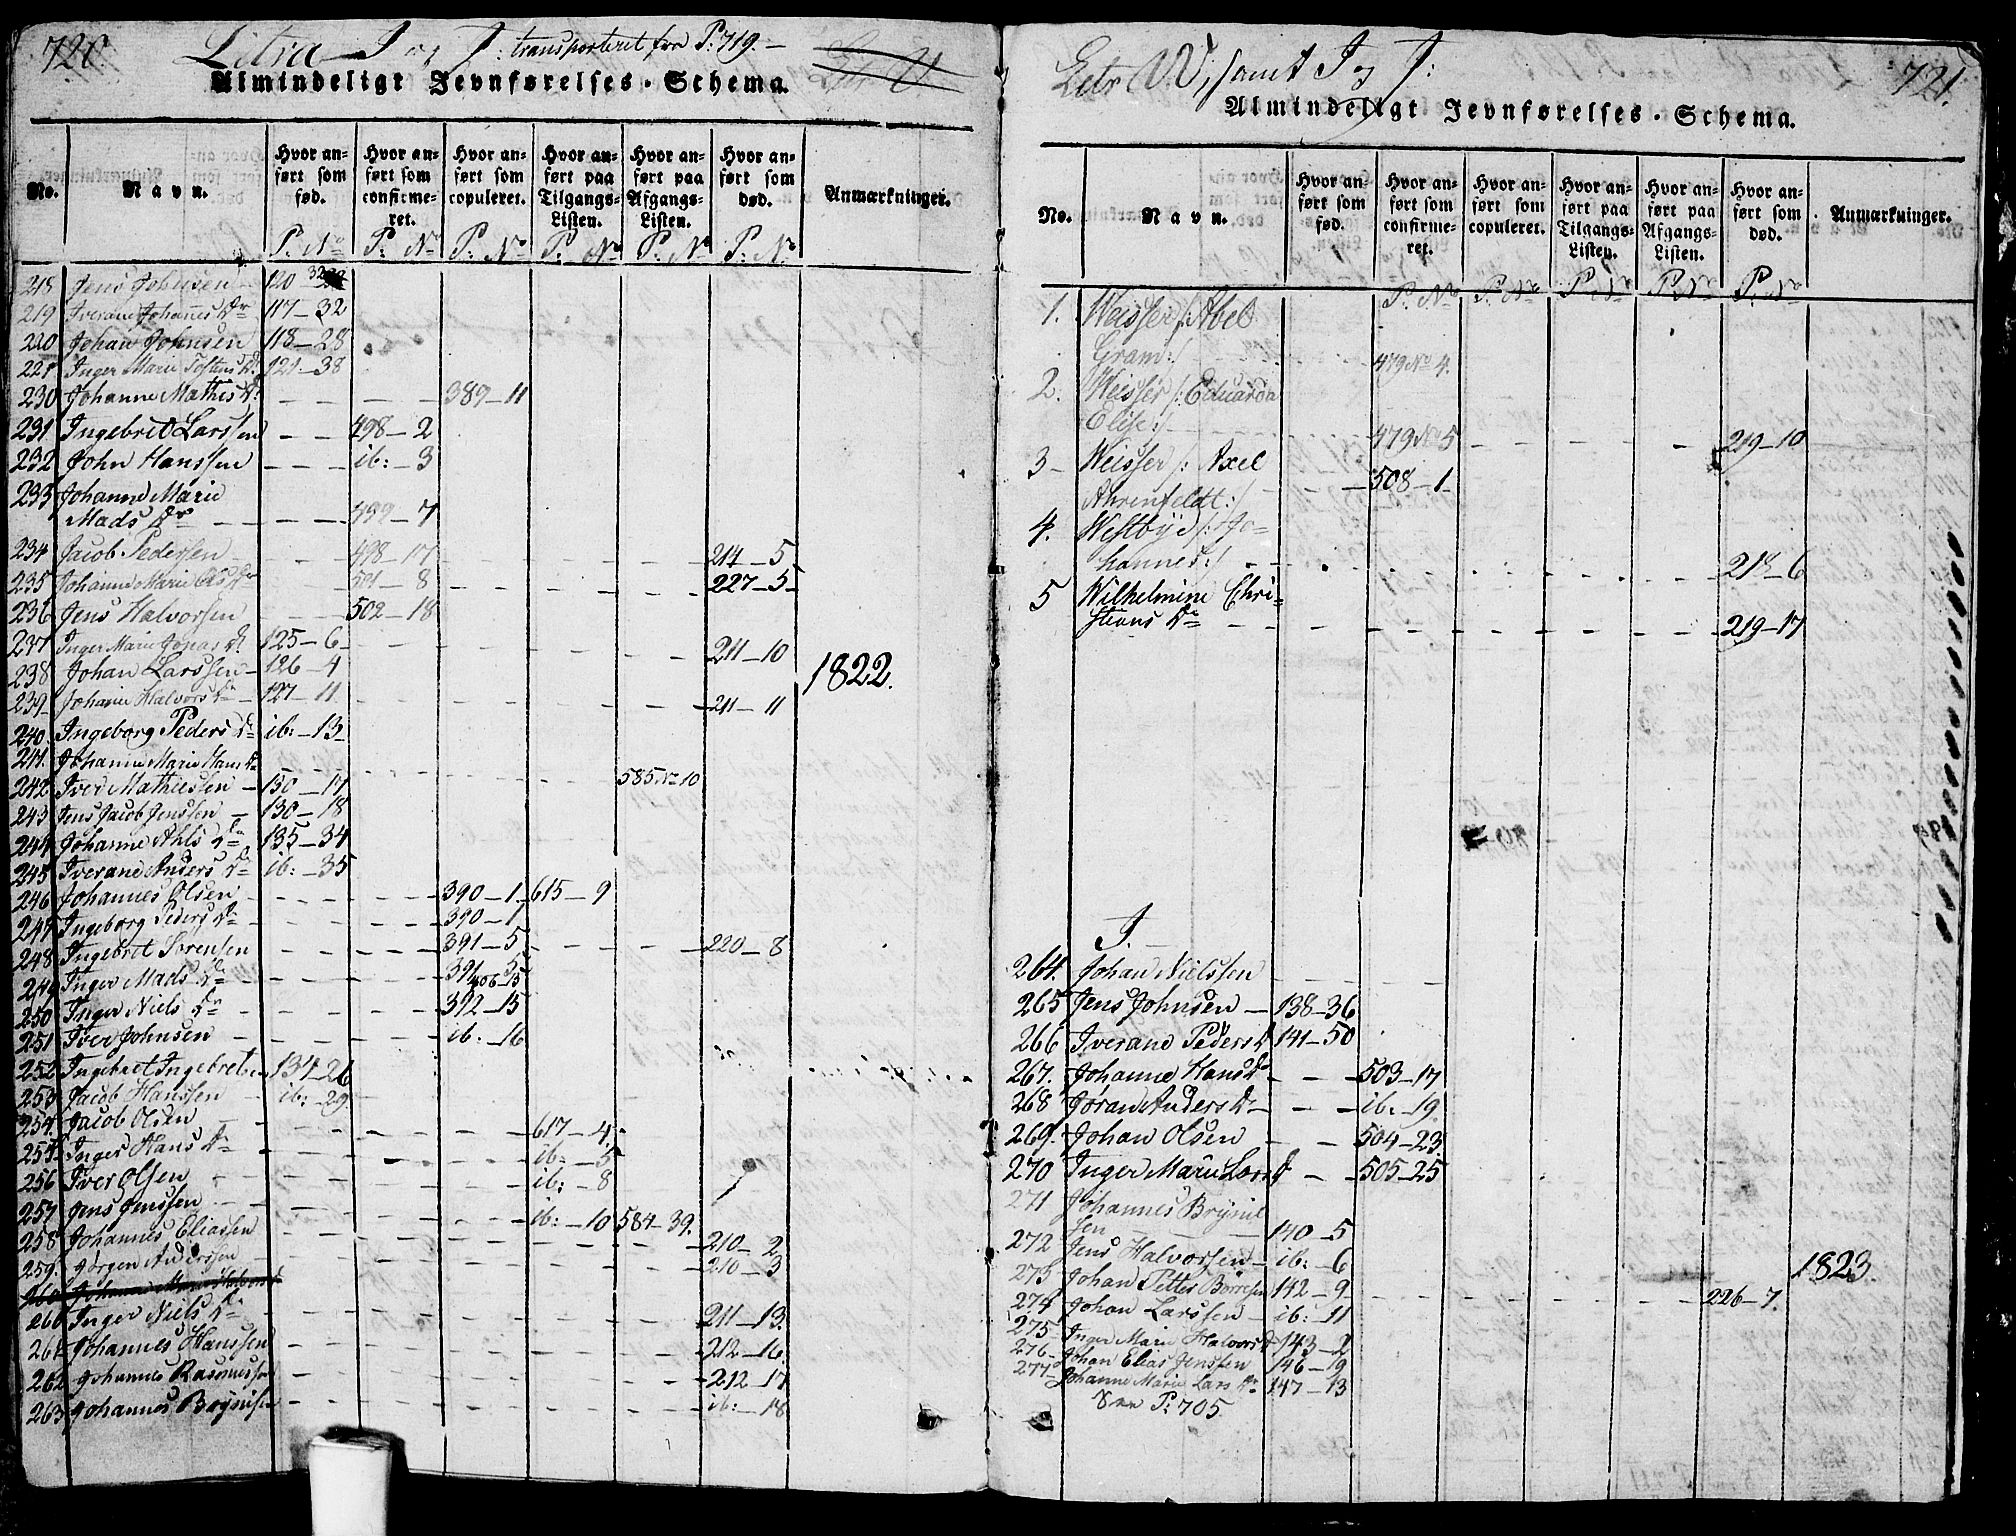 720
Litra I og J: transporteret fra P: 719.
Almindeligt Jevnførelses-Schema.
No. Navn. Hvor anført som fød. Hvor anført som confirmeret. Hvor anført som copuleret. Hvor anført paa Tilgangs-Listen. Hvor anført paa Afgangs-Listen. Hvor anført som død. Anmærkninger.
P: No P: No P: No P: No P: No P: No
218 Jens Johnsen 120
219 Iverane Johannes Dr 117-32
220 Johan Johnsen 118-28
221 Inger Marie Dr 121-38
230 Johanne Mathis Dr 389-11
231 Ingebret Larssen 498-2
232 John Hanssen ib:-3
233 Johanne Marie
Mads Dr 499-7
234 Jacob Pedersen 498-17 214-5
235 Johanne Marie Dr 501-8 227-5
236 Jens Halvorsen 502-18
237 Inger Marie Jonas D. 125-6 211-10
238 Johan Larssen 126-4
1822.
239 Johanne Halvors Dr 127-11 211-11
240 Ingeborg Peders Dr ib:-13
241 Johanne Marie Hans Dr 585 No 10
242 Iver Mathiessen 130-17
243 Jens Jacob Jenssen 130-18
244 Johanne Ahls Dr 135-34
245 Iverane Anders Dr ib:-35
246 Johannes Olsen 390-1 615-9
247 Ingeborg Peders Dr 390-1
248 Ingebret Sørensen 391-5 220-8
249 Inger Mads Dr 391-5
406-15
250 Inger Niels Dr 392-15
251 Iver Johnsen ib:-16
252 Ingebret Ingebretsen 134-26
253 Jacob Hanssen ib:-29
254 Jacob Olsen 617-4
255 Inger Hans Dr ib:-5
256 Iver Olsen ib:-8
257 Jens Jenssen ib:-10 584-39.
258 Johannes Eliassen 210-2
259 Jørgen Anderssen 210-3
260 Johanne Marie Halvors
260 Inger Niels Dr 211-13
261 Johannes Hanssen 212-16
262 Johannes Rasmussen 212-17
263 Johannes Brynilsen ib:-18
721.
Litr V. W, samt I og J:
Almindeligt Jevnførelses-Schema.
No. Navn. Hvor anført som fød. Hvor anført som confirmeret. Hvor anført som copuleret. Hvor anført paa Tilgangs-Listen. Hvor anført paa Afgangs-Listen. Hvor anført som død. Anmærkninger.
P: No P: No P: No P: No P: No
1. Weisser /: Abel
Gram:/ 479 No 4.
2. Weisser /: Eduarda
Elise:/ 479 No 5 219-10
3- Weisser /: Axel
Ahrenfeldt:/ 508-1
4. Westbÿe /: Jo-
hannes:/ 218-6
5 Wilhelmine Chri-
stians Dr 219-17
J.
264. Johan Nielssen
265 Jens Johnsen 138-36
266 Iverane Peders D 141-50
267. Johanne Hans Dr 503-17
268 Joran Anders Dr ib:-19
269. Johan Olsen 504-23
270 Inger Marie Lars D 505-25
271 Johannes Brynil
sen 140-5
272 Jens Halvorsen ib:-6
1823.
273 Johan Petter Børresen 142-9 226-7.
274 Johan Larssen ib:-11
275 Inger Marie Halvors D 143-2
276 Johan Elias Jenssen 146-19
277 Johanne Marie Lars Dr 147-13
P: 705.